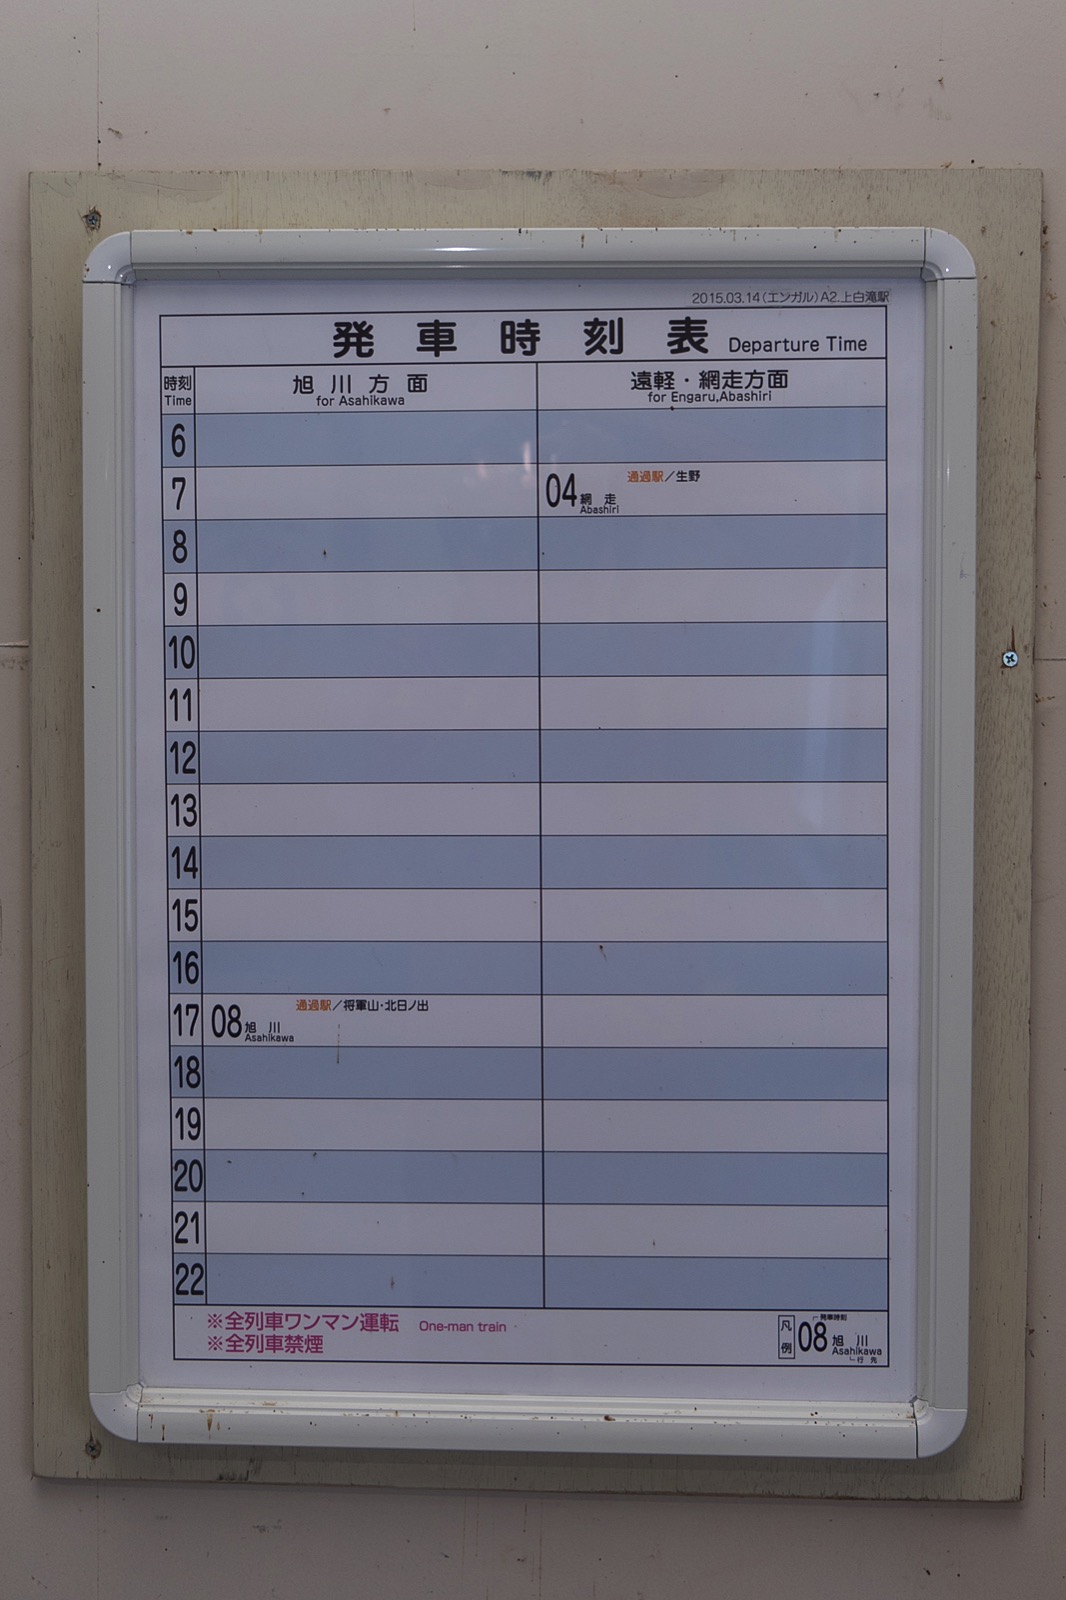 2015.03.14(エンガル)A2.上白滝駅
発車時刻表 Departure Time
時刻
Time
旭川方面
for Asahikawa
遠軽・網走方面
for Engaru,Abashiri
6
7
04 網走
Abashiri
通過駅/生野
8
9
10
11
12
13
14
15
16
17
08 旭川
Asahikawa
通過駅/将軍山・北日ノ出
18
19
20
21
22
※全列車ワンマン運転 One-man train
※全列車禁煙
凡例
発車時刻
08 旭川
Asahikawa
行先